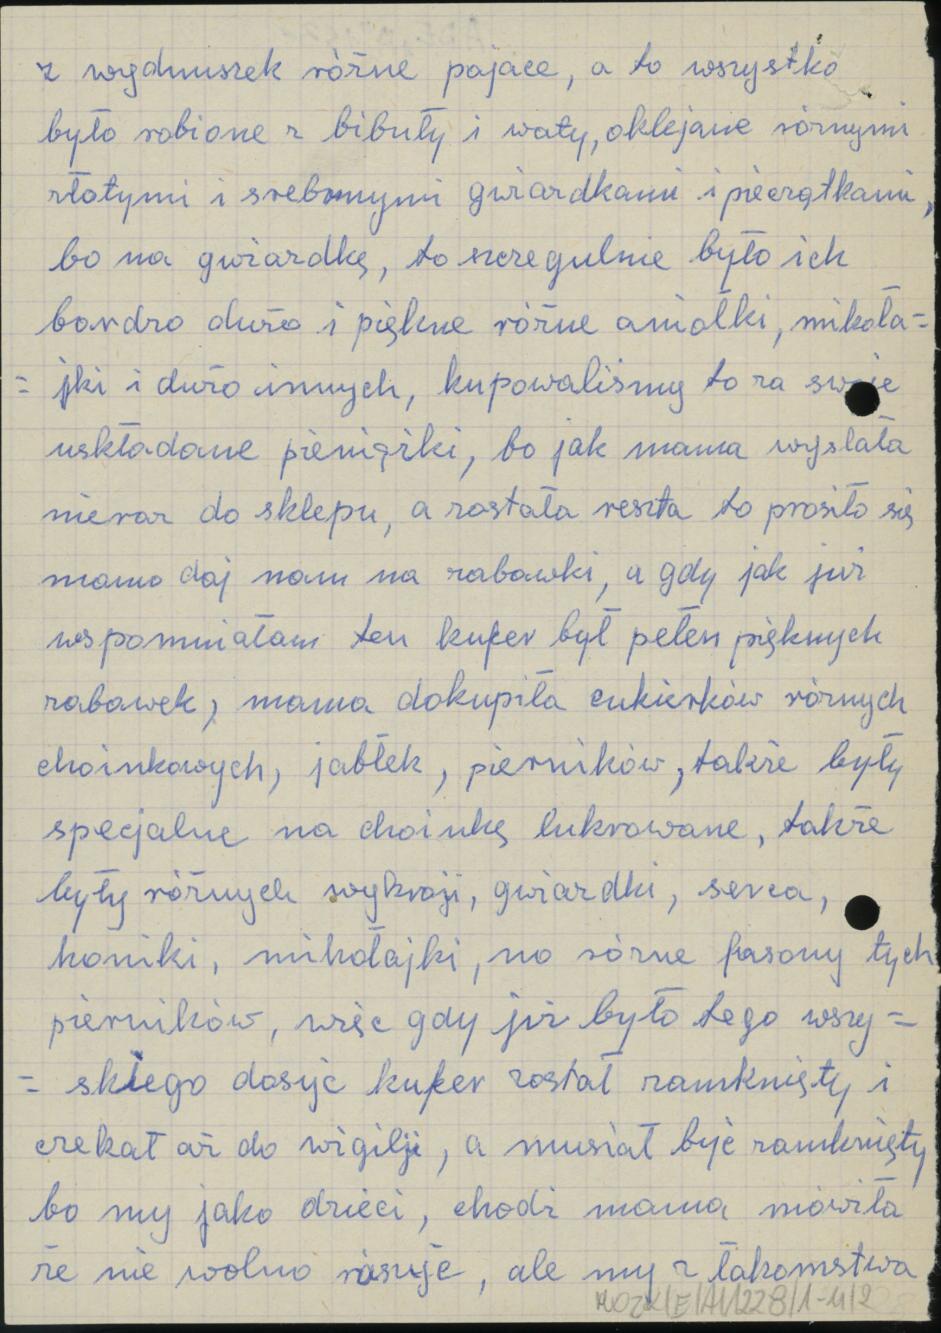 z wydmuszek różne pajace, a to wszystko
było robione z bibuły i waty, oklejane różnymi
złotymi i srebrnymi gwiazdkami i pieczątkami,
bo na gwiazdkę, to szczegulnie było ich
bardzo dużo i piękne różne aniołki, mikoła=
= jki i dużo innych, kupowaliśmy to za swoje
uskładane pieniążki, bo jak mama wysłała
nieraz do sklepu, a została reszta to prosiło się
mamo daj nam na zabawki, a gdy jak już
wspomniałam ten kufer był pełen pięknych
zabawek, mama dokupiła cukierków różnych
choinkowych, jabłek, pierników, także były
specjalne na choinkę lukrowane, także
były różnych wykroji, gwiazdki, serca,
koniki, mikołajki, no różne fasony tych
pierników, więc gdy już było tego wszy=
= skiego dosyć kufer został zamknięty i
czekał aż do wigilji, a musiał być zamknięty
bo my jako dzieci, chodź mama mówiła
że nie wolno ruszyć, ale my z łakomstwa
MOZK/E/A1/228/1-4/2